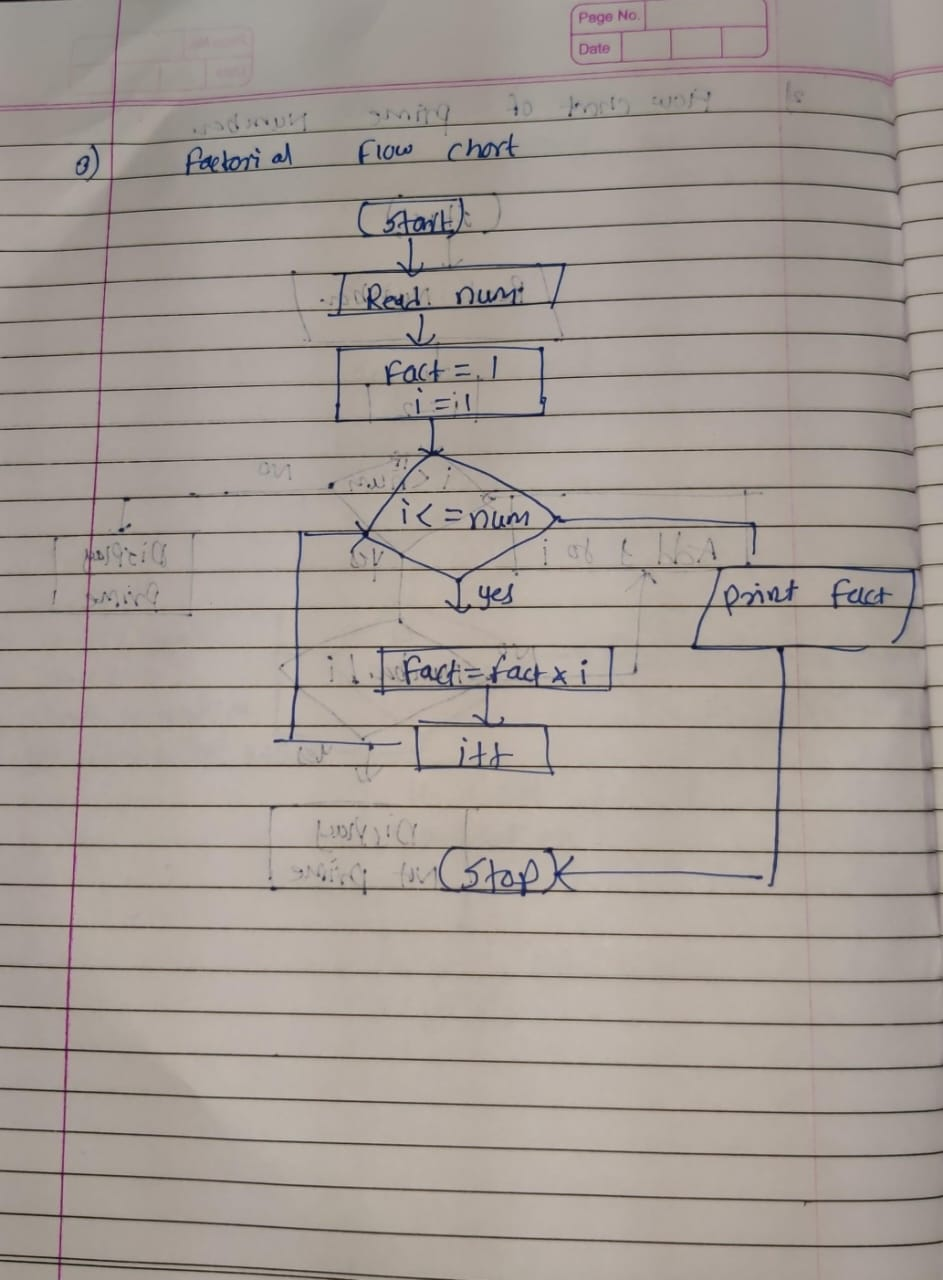 Page No.
Date
3) factorial Flow chart
Start
Read num
Fact = 1
i = 1
i <= num
yes
print fact
fact = fact x i
i++
Stop